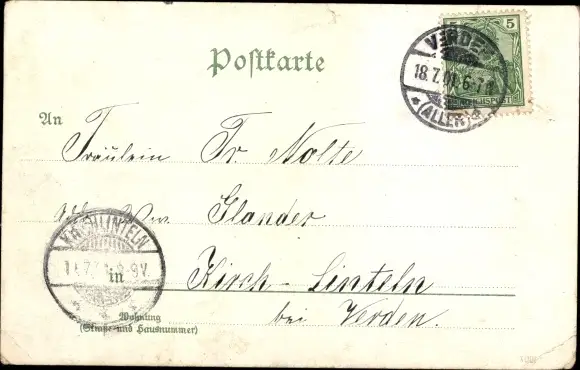 Postkarte
5
VERDEN
18.7.01.6-7N
*(ALLER)*
REICHSPOST
An
Fräulein Fr Nolte
Ww. Glander
KIRCHLINTELN
8-9V.
in Kirch-Linteln
bei Verden.
Wohnung
(Straße und Hausnummer)